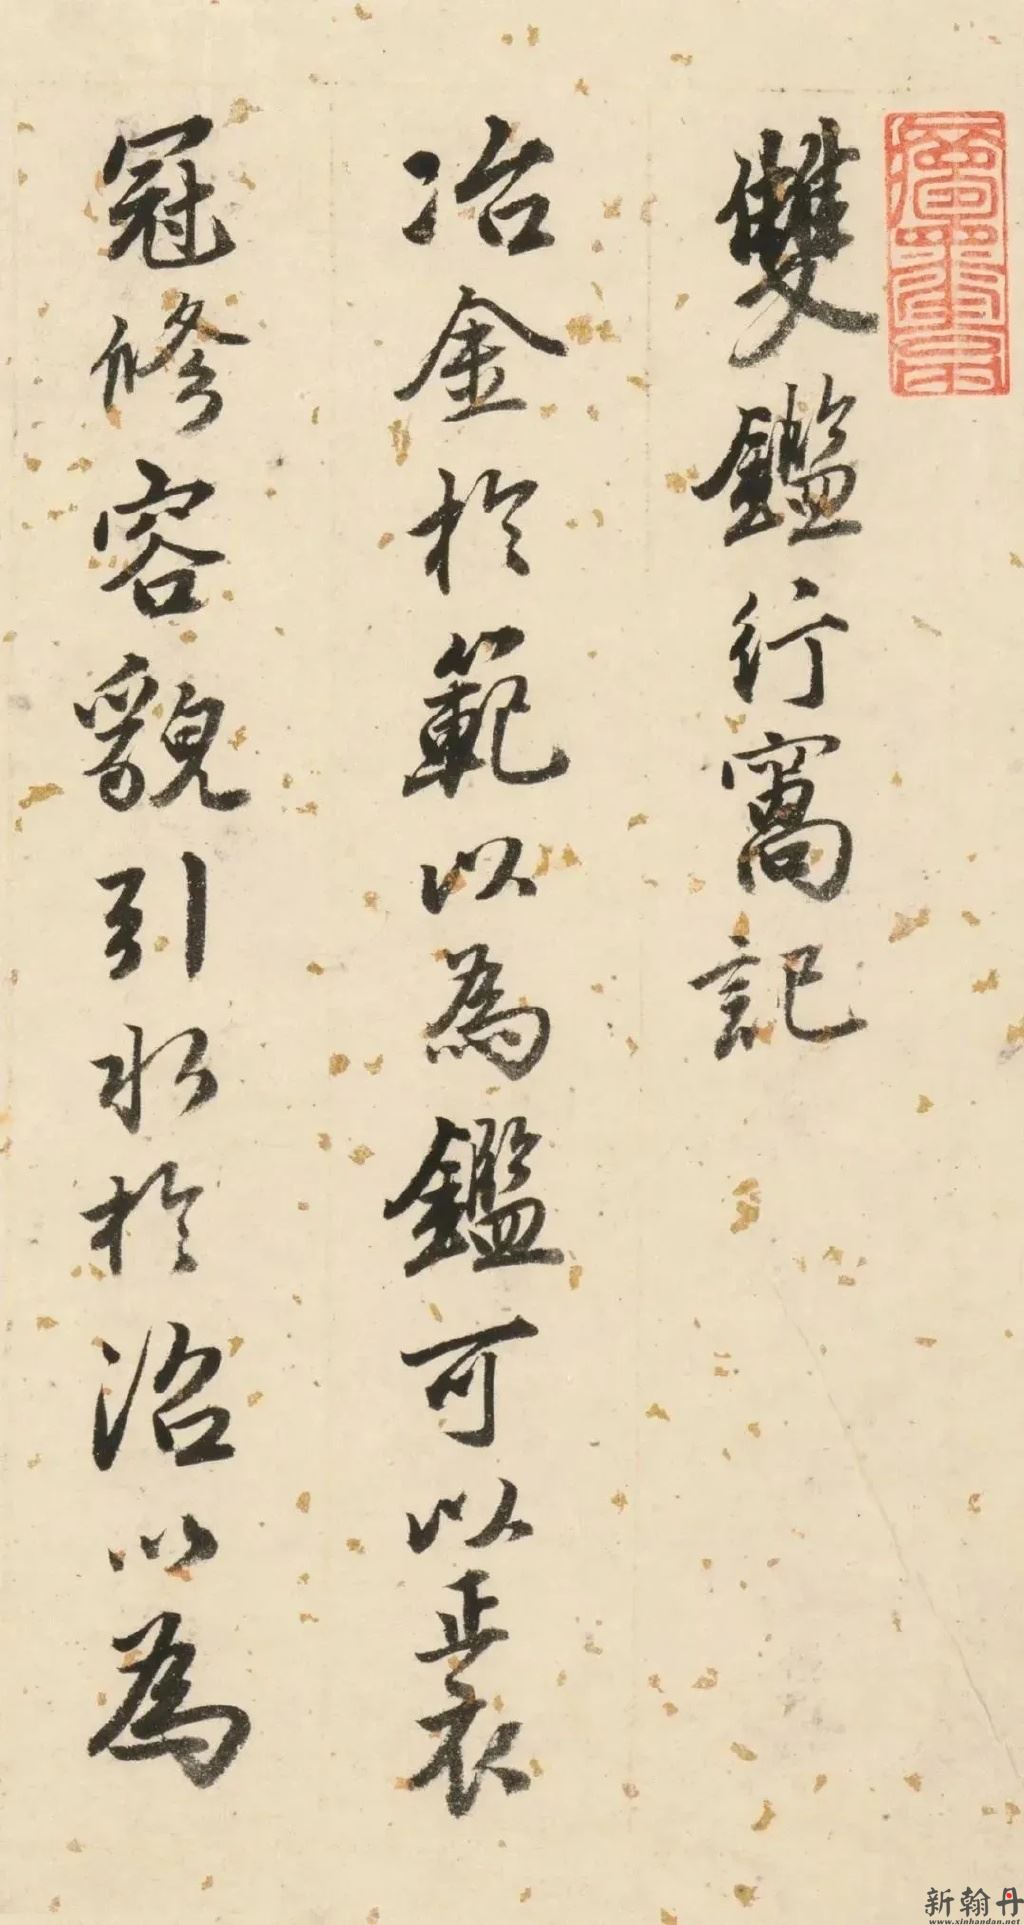 雙鑑行窩記
冶金於範以為鑑可以正衣
冠修容貌引水於沼以為
新翰丹
www.xinhandan.net